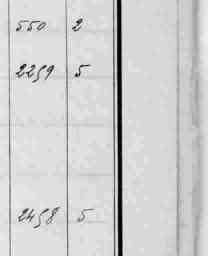 550 2
2259 5
2458 5